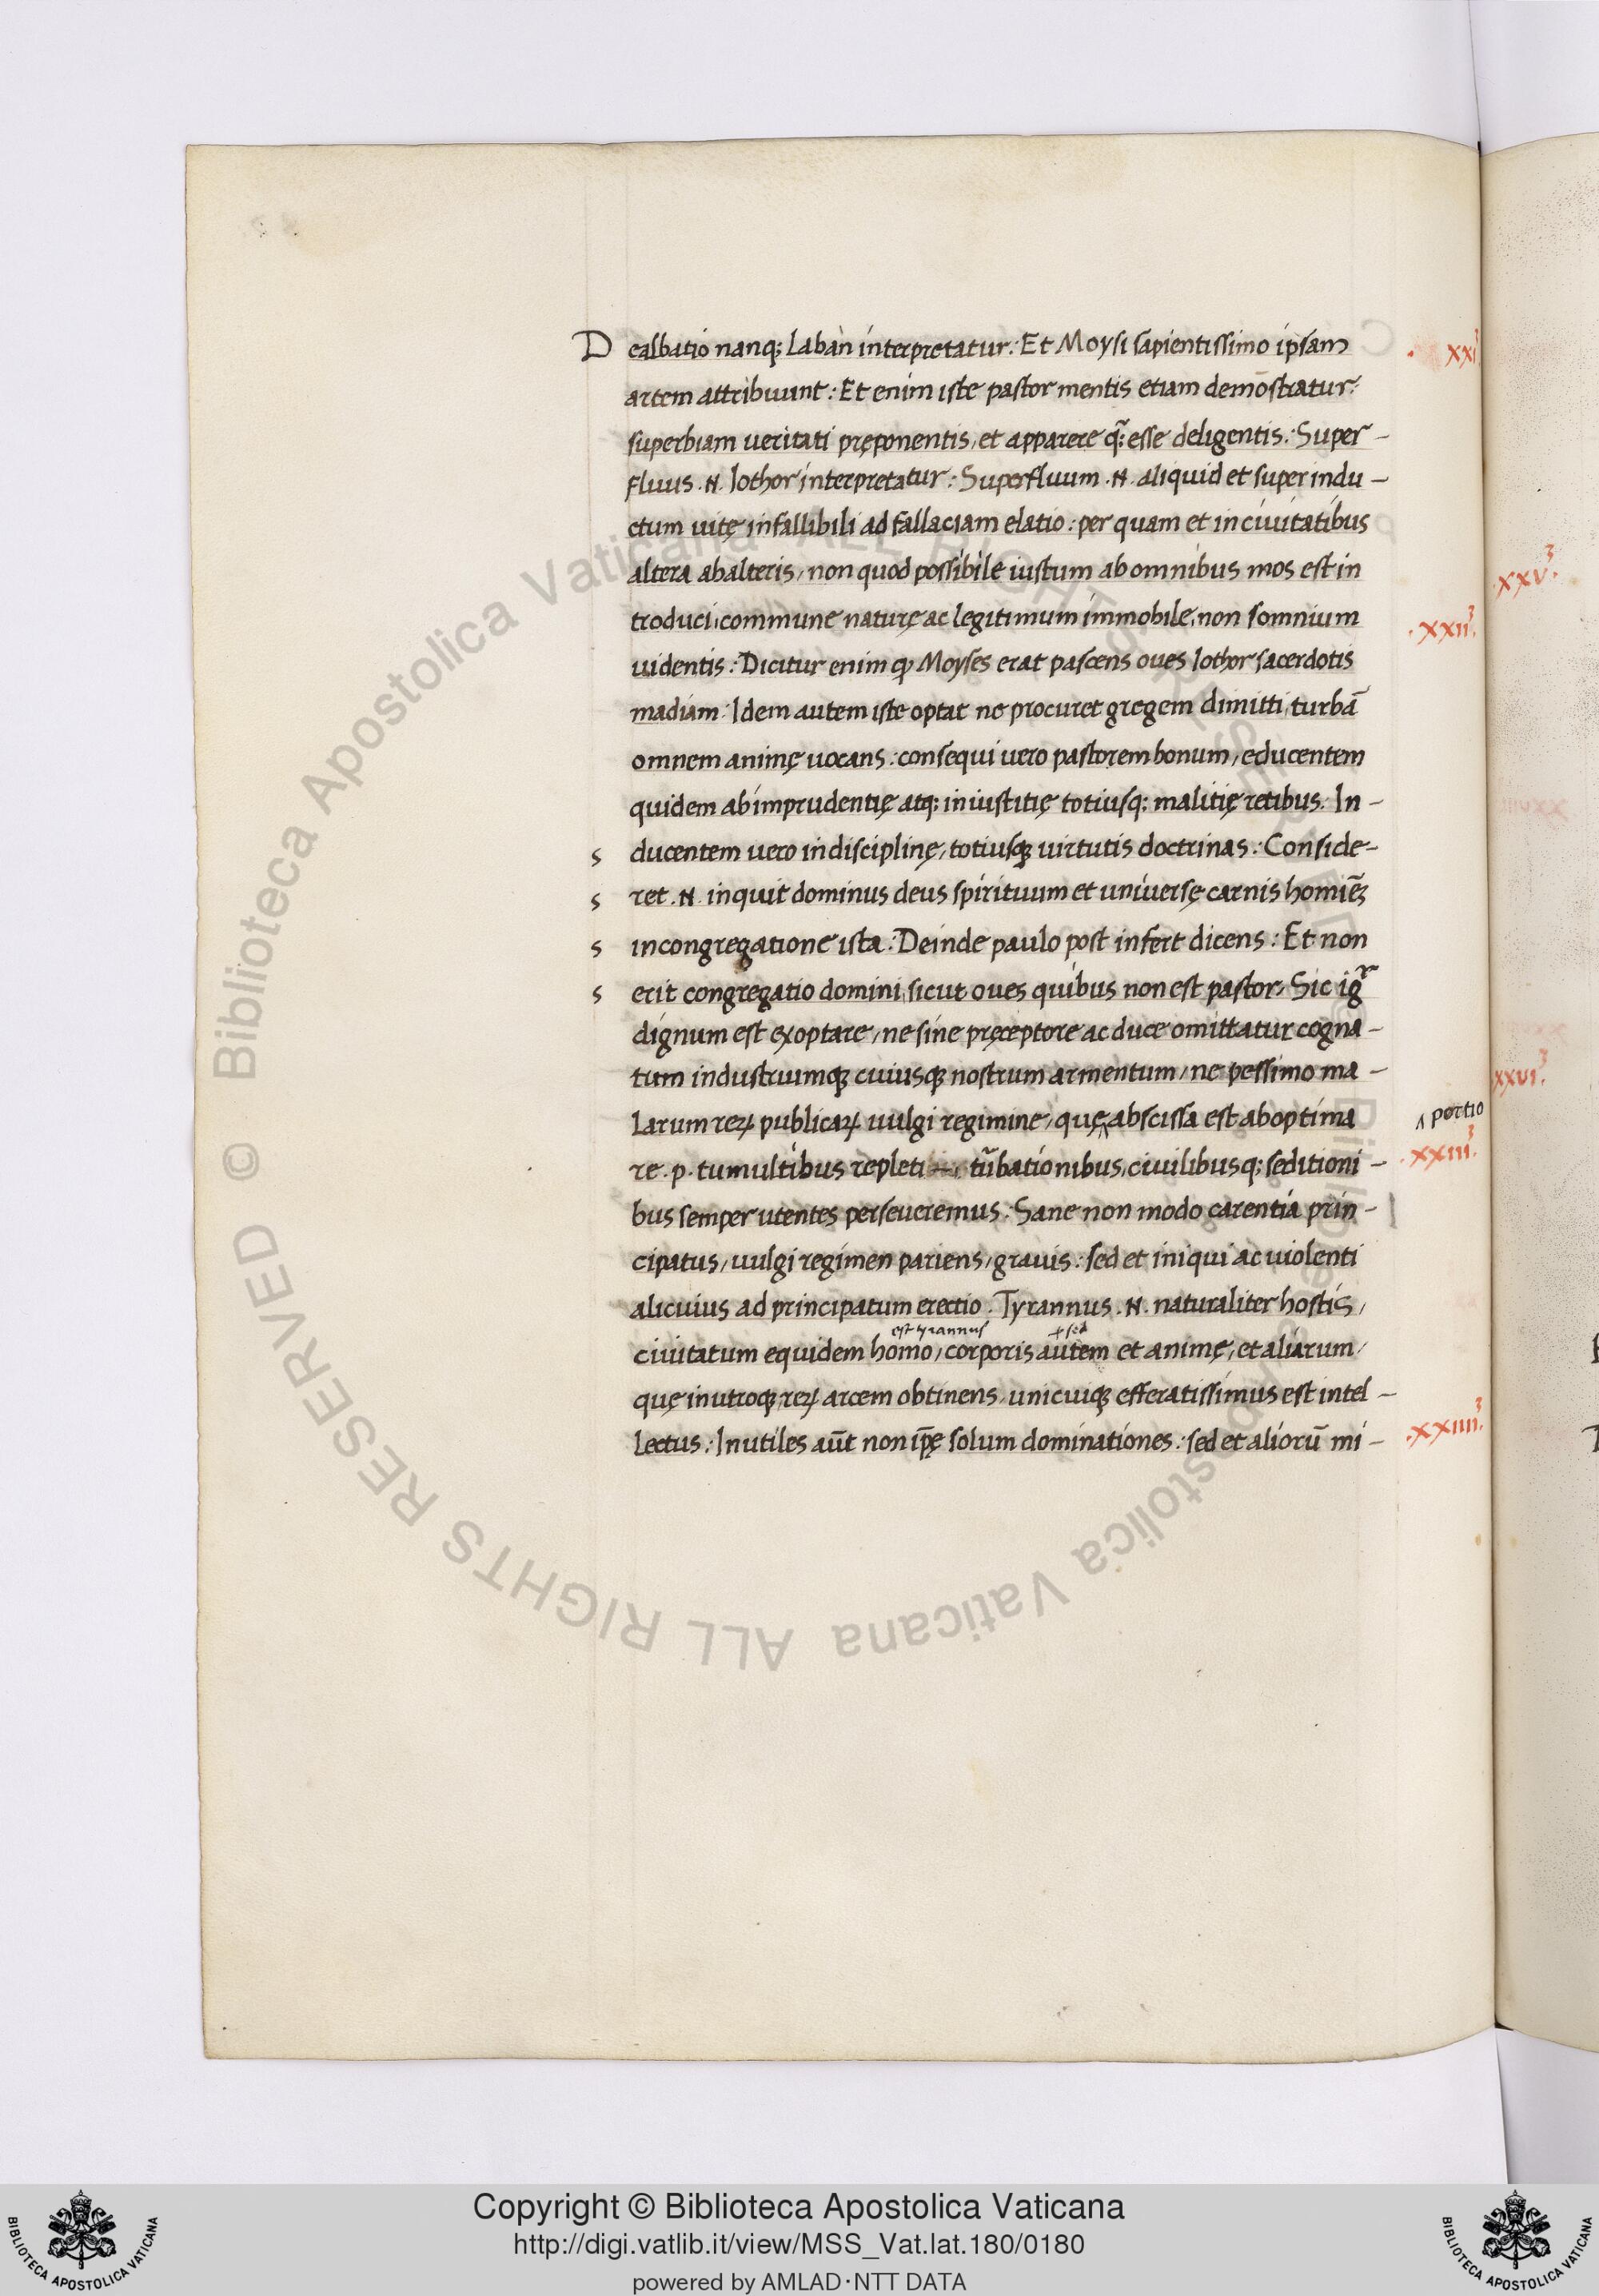 Dealbatio nanq; Laban interpretatur: Et Moysi sapientissimo ipsam
.xxi
artem attribuunt: Et enim iste pastor mentis etiam demōstratur:
superbiam ueritati pręponentis, et apparere q̄; esse deligentis: Super-
fluus .N. Iothor interpretatur: Superfluum .N. aliquid et super indu-
ctum uitę infallibili ad fallaciam elatio: per quam et in ciuitatibus
altera ab alteris, non quod possibile iustum ab omnibus mos est in
troduci, commune naturę ac legitimum immobile, non somnium
.xxii³.
uidentis: Dicitur enim ꝙ Moyses erat pascens oues Iothor sacerdotis
madiam: Idem autem iste optat ne procuret gregem dimitti, turbā
omnem animę uocans: consequi uero pastorem bonum, educentem
quidem ab imprudentię atq; iniustitię totiusq; malitię retibus: In-
s ducentem uero in disciplinę, totiusqꝫ uirtutis doctrinas: Conside-
s ret .N. inquit dominus deus spirituum et uniuersę carnis homiēꝫ
s in congregatione ista: Deinde paulo post infert dicens: Et non
s erit congregatio domini, sicut oues quibus non est pastor, Sic igr̄
dignum est exoptare, ne sine pręceptore ac duce omittatur cogna-
tum industriumqꝫ cuiusqꝫ nostrum armentum, ne pessimo ma-
larum reꝝ publicaꝝ uulgi regimine, quę ‸ abscissa est ab optima
‸ portio
re .p. tumultibus repleti tūbationibus, ciuilibusq; seditioni-
.xxiii³.
bus semper utentes perseueremus: Sane non modo carentia prin-
cipatus, uulgi regimen pariens, grauis: sed et iniqui ac uiolenti
alicuius ad principatum erectio. Tyrannus .N. naturaliter hostis,
est tyrannus + sed
ciuitatum equidem homo, corporis autem et animę, et aliarum,
quę in utroqꝫ reꝝ arcem obtinens, unicuiqꝫ efferatissimus est intel-
lectus: Inutiles aūt non ip̄ę solum dominationes: sed et aliorū mi-
.xxiiii³.
.xxv³.
xxvi³.
Copyright © Biblioteca Apostolica Vaticana
http://digi.vatlib.it/view/MSS_Vat.lat.180/0180
powered by AMLAD·NTT DATA
BIBLIOTECA APOSTOLICA VATICANA
BIBLIOTECA APOSTOLICA VATICANA
© Biblioteca Apostolica Vaticana ALL RIGHTS RESERVED
© Biblioteca Apostolica Vaticana ALL RIGHTS RESERVED